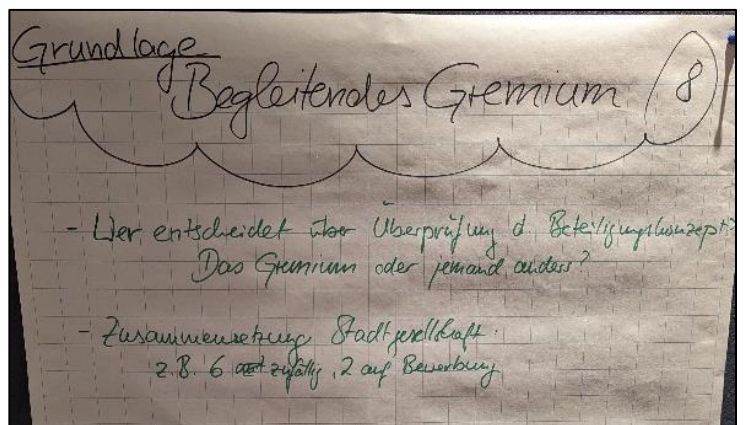 Grundlage
Begleitendes Gremium 8
- Wer entscheidet über Überprüfung d. Beteiligungskonzept?
Das Gremium oder jemand anders?
- Zusammensetzung Stadtgesellschaft.
z.B. 6 zufällig, 2 auf Bewerbung